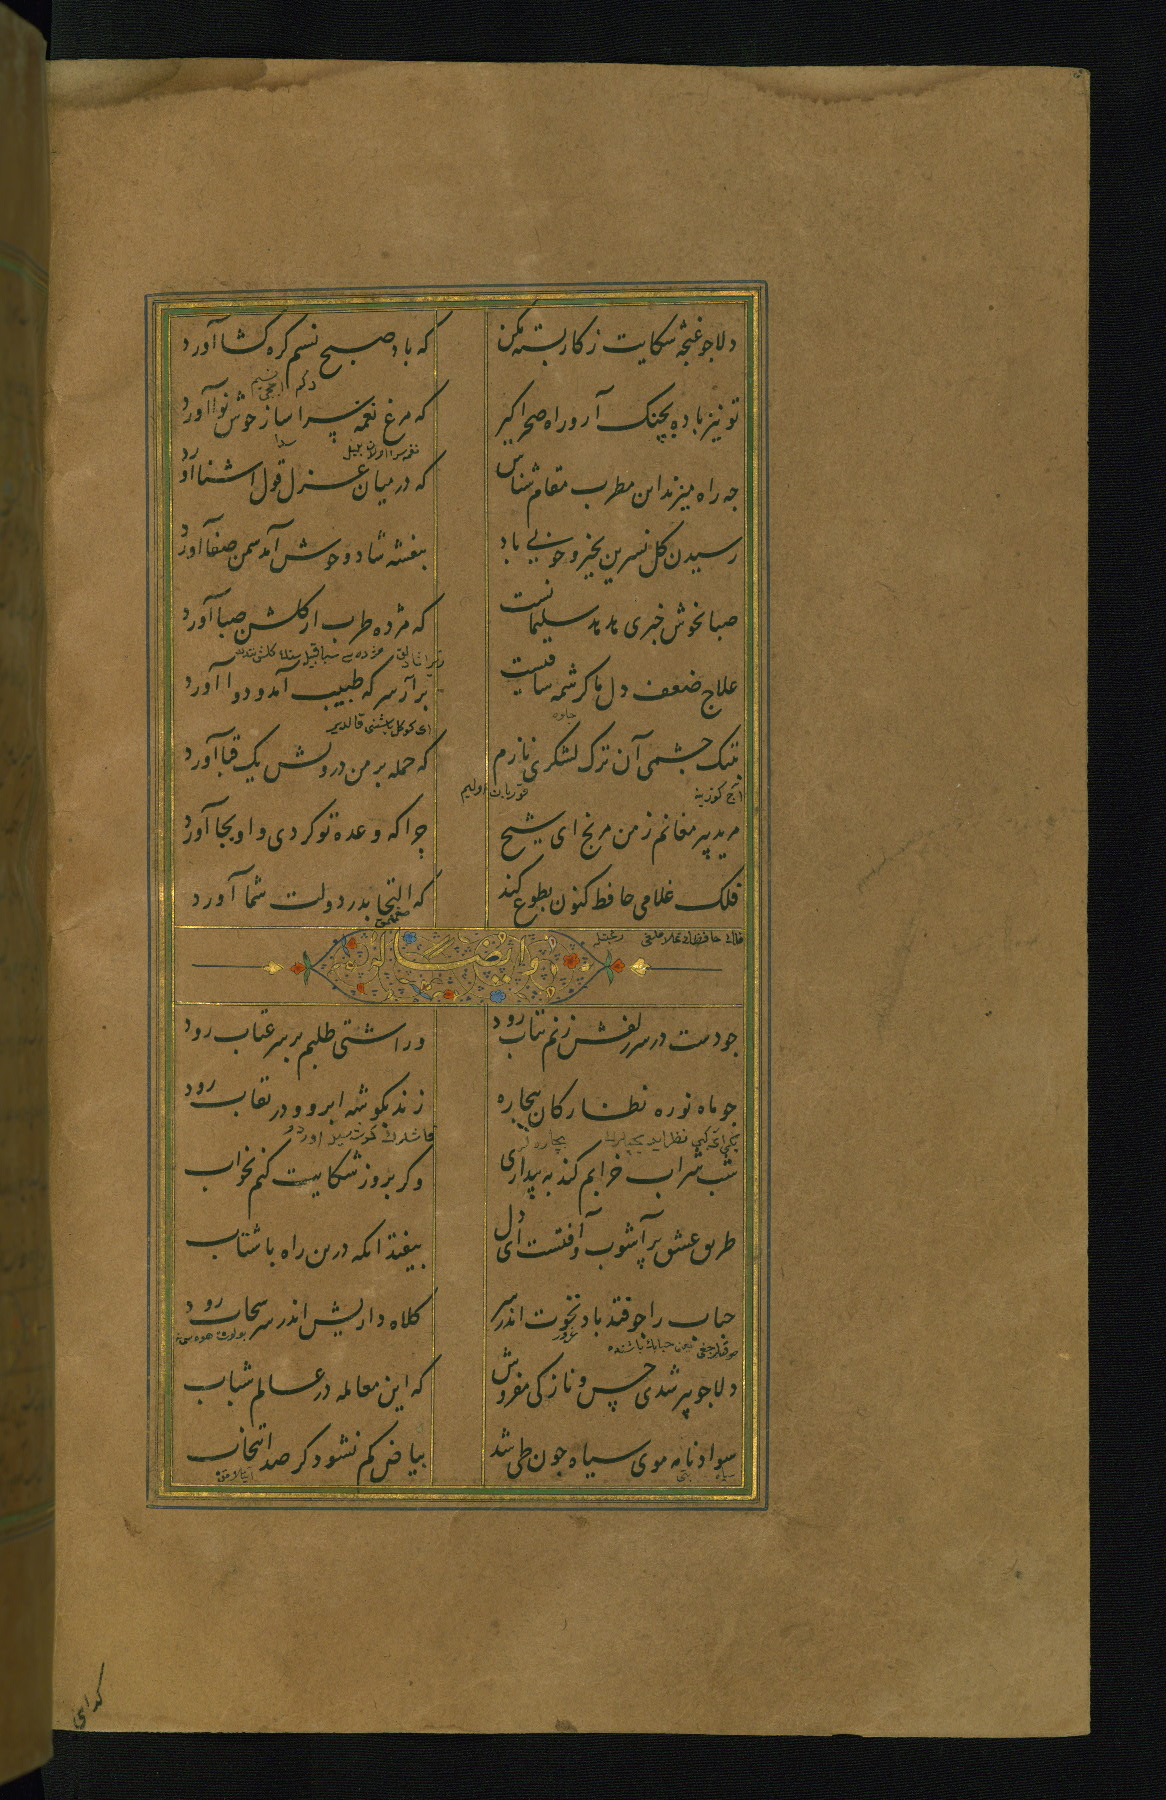 دلا جو غنچه شکایت ز کار بسته مکن که باد صبح نسیم کره کشا آورد
تو نیز باده بچنک آر و راه صحرا کیر که مرغ نغمه سرا ساز خوش نوا آورد
نغمه سرا اولان بلبل
جه راه میزند این مطرب مقام شناس که در میان غزل قول آشنا آورد
رسیدن کل نسرین بخیر و خوبی باد بنفشه شاد و خوش آمد سمن صفا آورد
صبا بخوش خبری هدهد سلیمانست که مژده طرب از کلشن صبا آورد
علاج ضعف دل ما کرشمه ساقیست بر آر سر که طبیب آمد و دوا آورد
ای کوکل باشنی قالدیر
بتنک جشمی آن ترک لشکری نازم که حمله بر من درویش یک قبا آورد
آج کوزینه قوربان اولیم
مرید پیر مغانم ز من مرنج ای شیخ چرا که وعده تو کردی و او بجا آورد
فلک غلامی حافظ کنون بطوع کند که التجا بدر دولت شما آورد
وایضا له
جو دست در سر زلفش زنم بتاب رود ور آشتی طلبم بر سر عتاب رود
جو ماه نو ره نظارکان بیجاره زند بکوشه ابرو و در نقاب رود
شب شراب خرابم کند به بیداری وکر بروز شکایت کنم بخواب
طریق عشق پر آشوب و آفتست ای دل بیفتد انکه درین راه با شتاب
حباب را جو فتد باد نخوت اندر سر کلاه داریش اندر سر سحاب رود
غرور
دلا جو پیر شدی حسن و نازکی مفروش که این معامله در عالم شباب
سواد نامه موی سیاه جون طی شد بیاض کم نشود کر صد انتخاب
کدایی